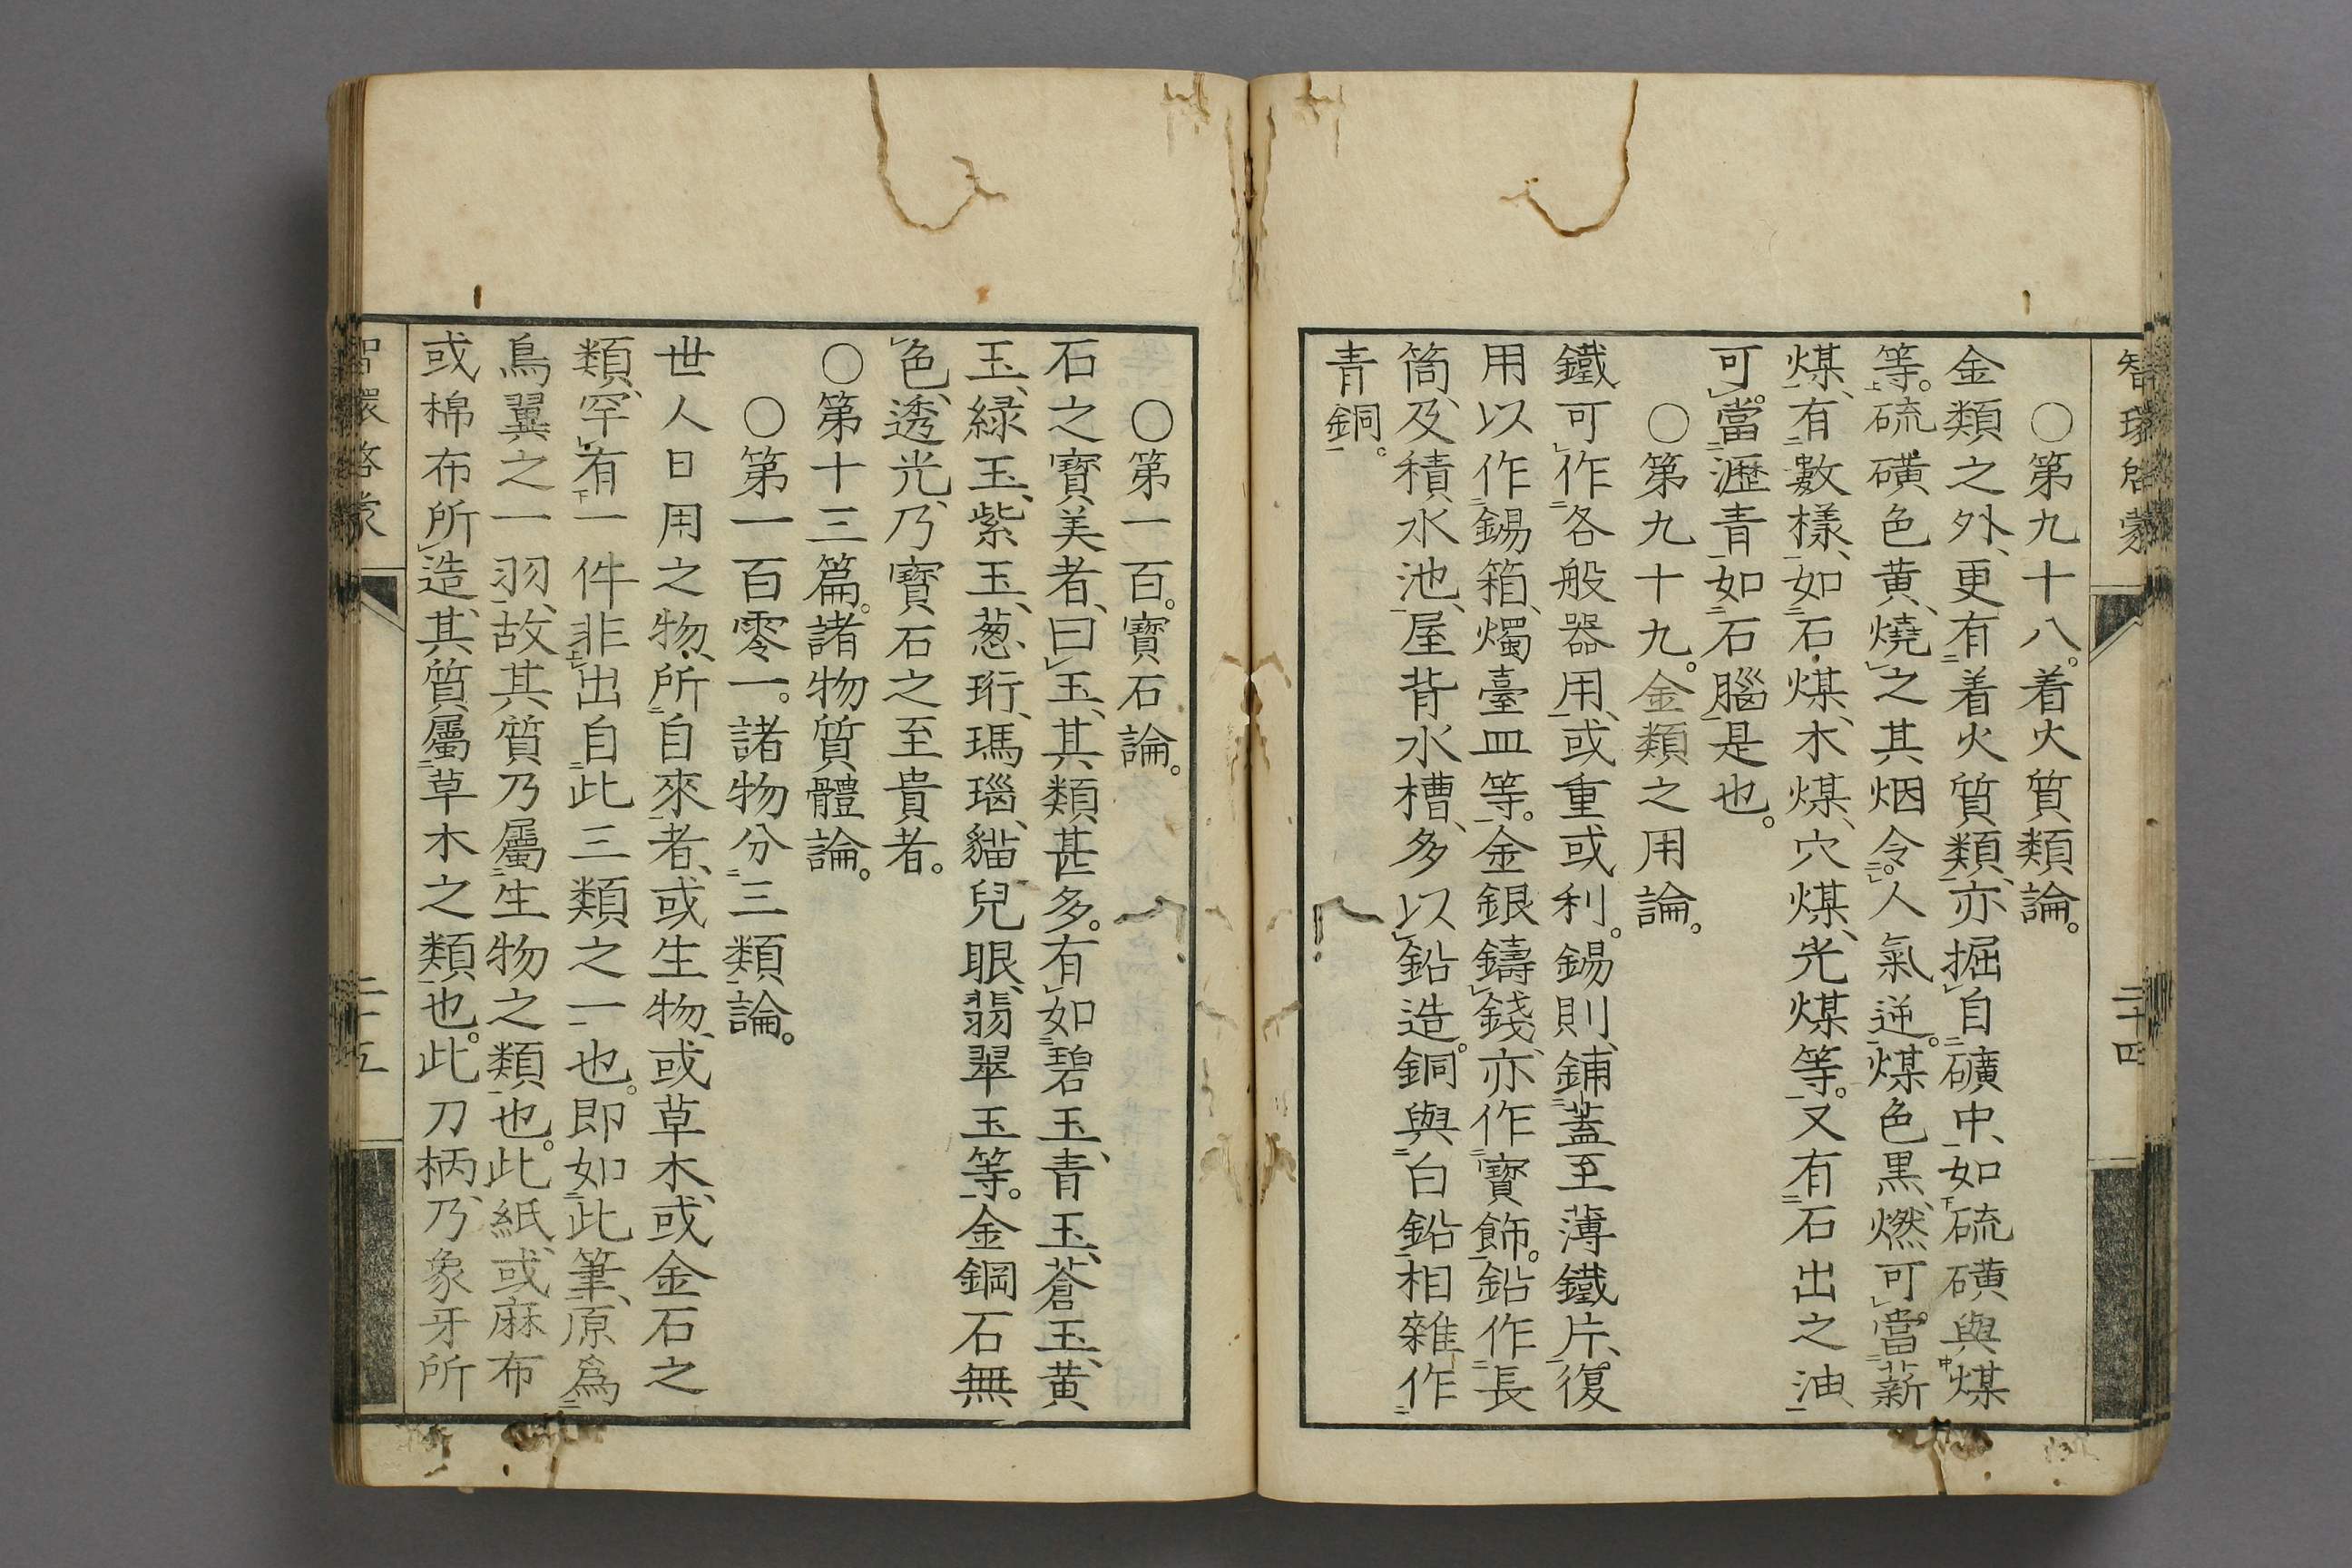 智環啓蒙 二十四
○第九十八。着火質類論。
金類之外、更有着火質類、亦掘自礦中、如硫磺與煤
等。硫磺色黄、燒之其烟令人氣逆。煤色黒、燃可當薪
煤、有數樣、如石煤、木煤、穴煤、光煤等。又有石出之油
可。當瀝青如石腦是也。
○第九十九。金類之用論。
鐵可作各般器用、或重或利。錫則、鋪蓋至薄鐵片、復
用以作錫箱、燭臺皿等。金銀鑄錢、亦作寳飾。鉛作長
筒、及積水池、屋背水槽、多以鉛造。銅與白鉛相雜作
青銅。
○第一百。寳石論。
石之寳美者、曰玉、其類甚多。有如碧玉、青玉、蒼玉、黄
玉、緑玉、紫玉、葱珩、瑪瑙、貓兒眼、翡翠玉等。金鋼石無
色、透光、乃寳石之至貴者。
○第十三篇。諸物質體論。
○第一百零一。諸物分三類論。
世人日用之物、所自來者、或生物、或草木、或金石之
類、罕有一件非出自此三類之一也。即如此筆、原爲
鳥翼之一羽、故其質乃屬生物之類也。此紙、或麻布
或棉布所造、其質屬草木之類也。此刀柄、乃象牙所
智環啓蒙 二十五